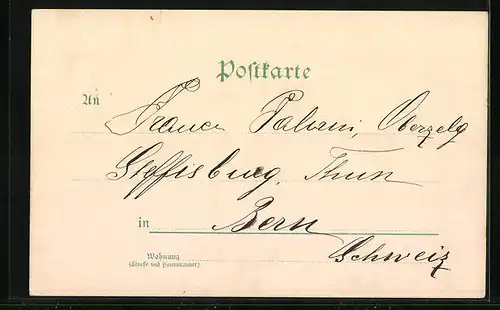 Postkarte
An
Franca Fahrni, Oberzelg
Steffisburg, Thun
in Bern
Schweiz
Wohnung
(Straße und Hausnummer)